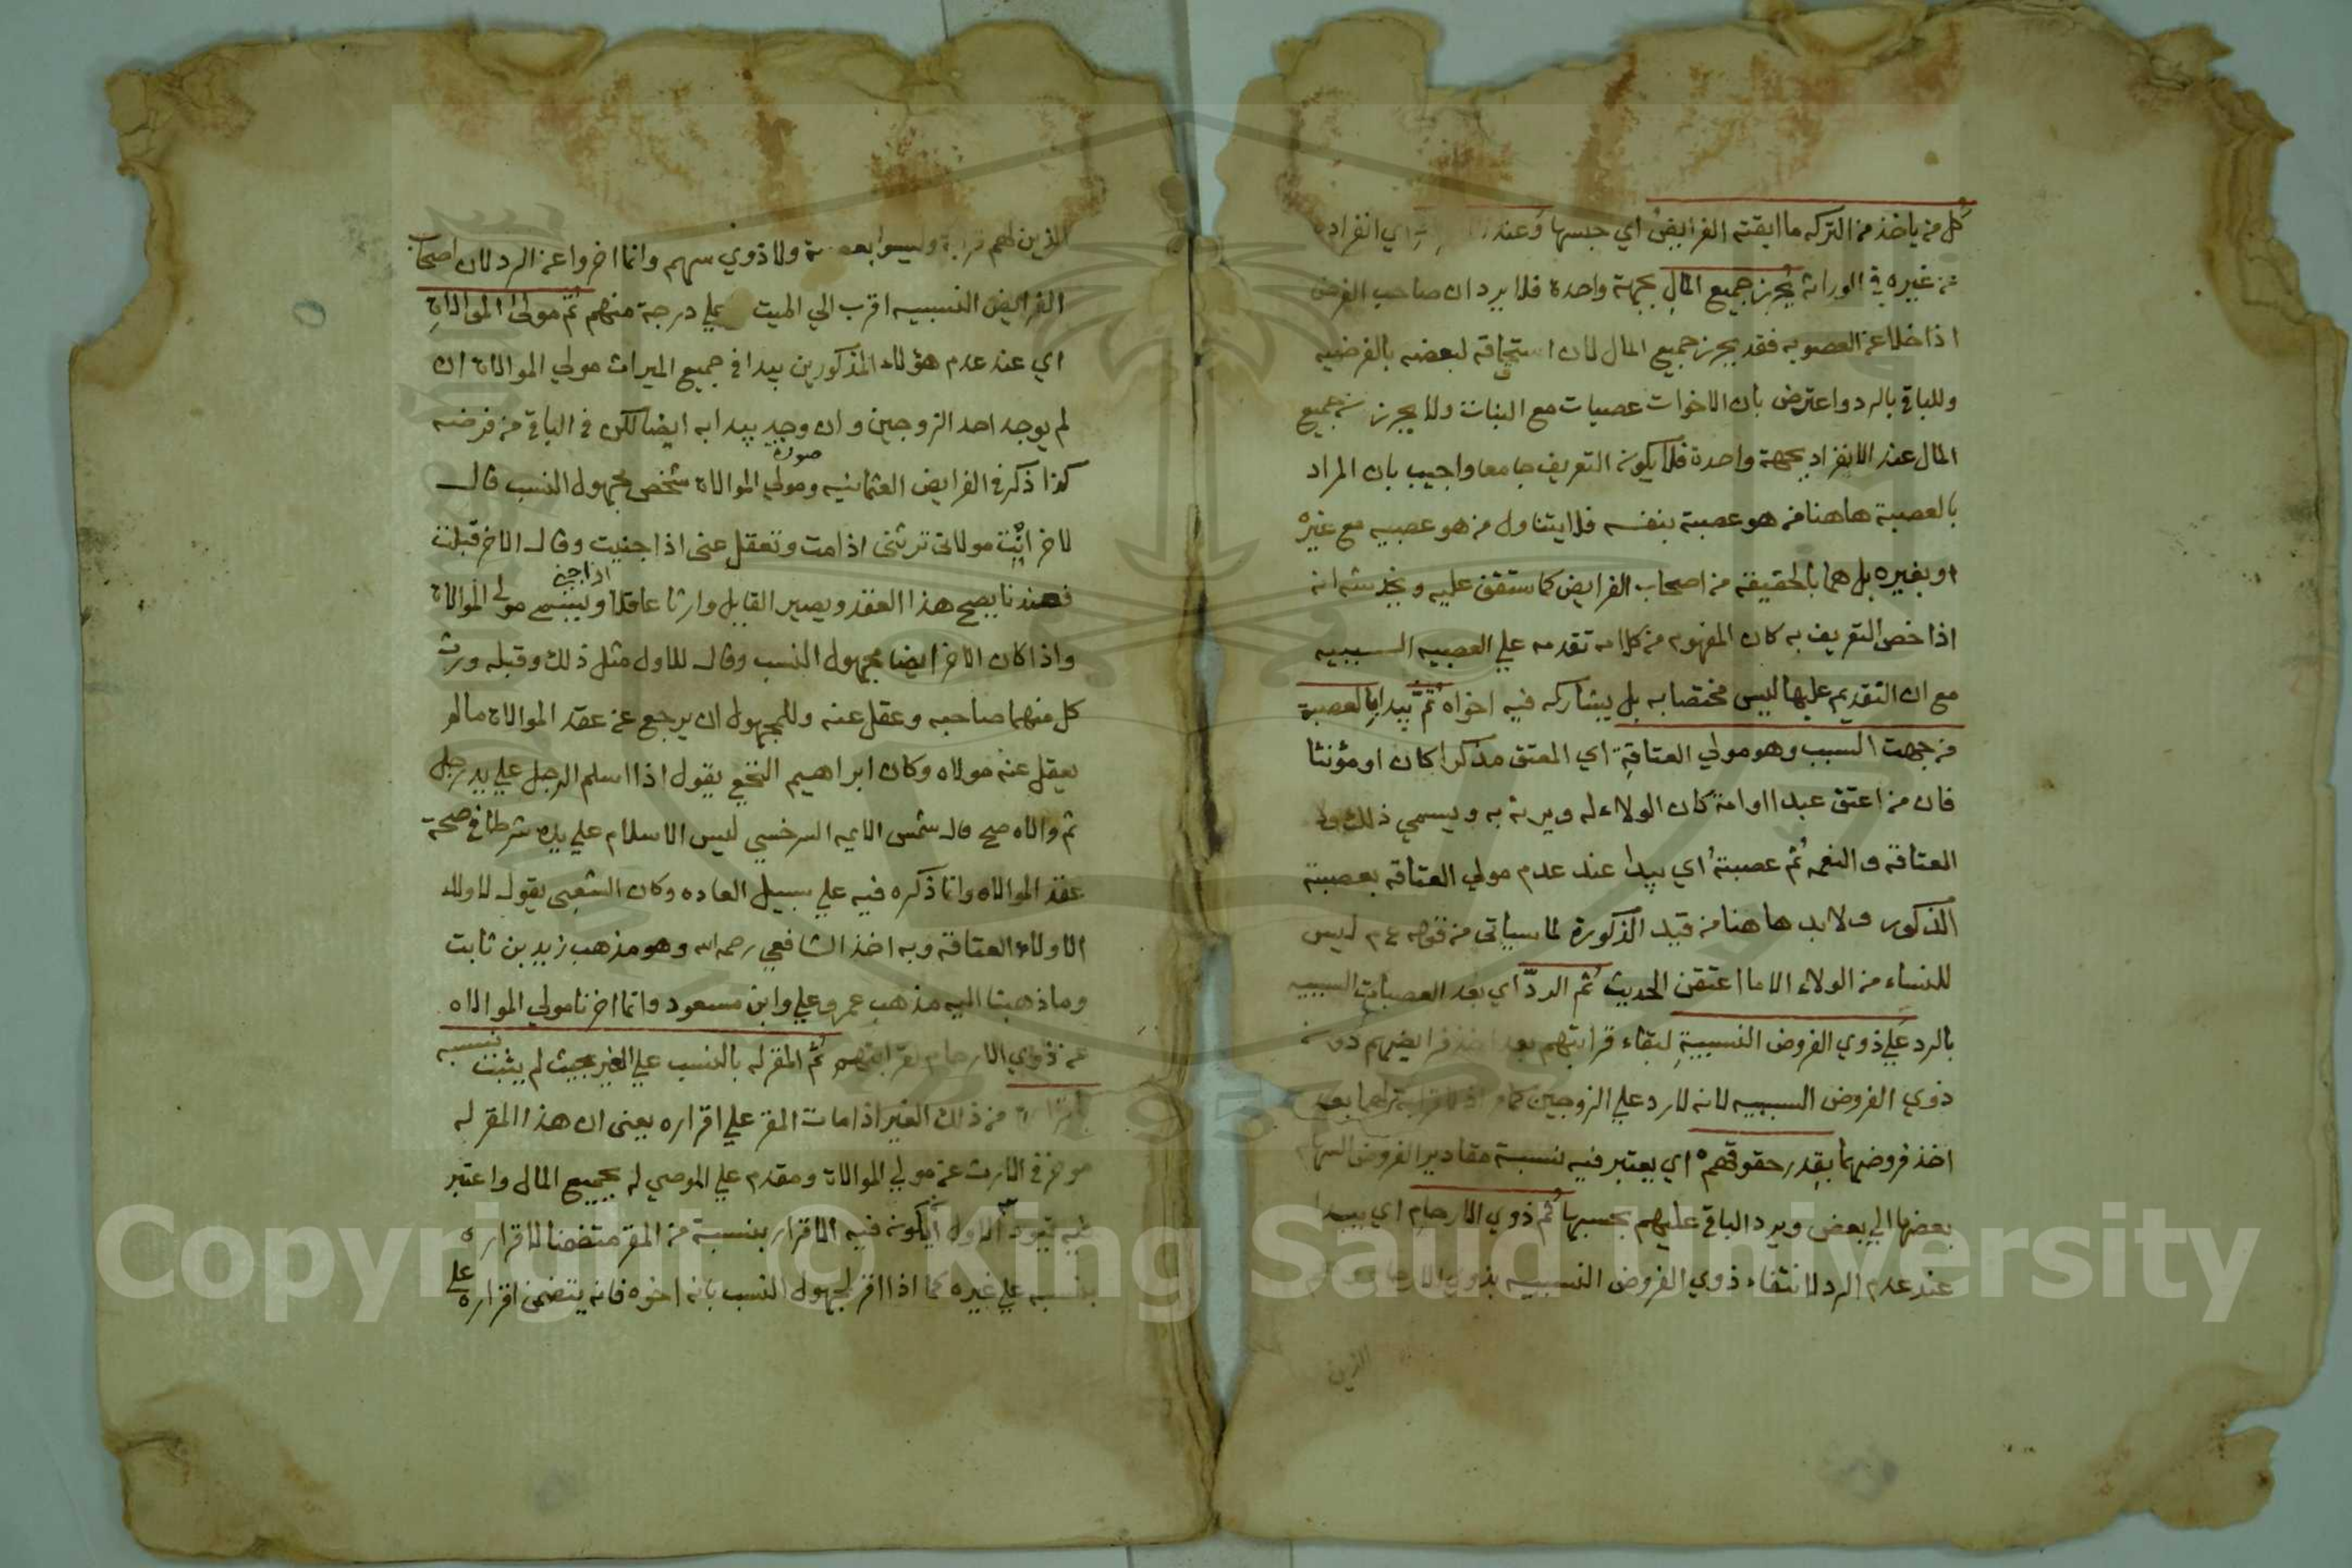 كل من ياخذ من التركه ما ابقته الفرايض اي جنسها وعند اي انفراده
عن غيره في الوراثة يحرز جميع المال بجهة واحدة فلا يرد ان صاحب الفرض
اذا خلا عن العصوبه فقد يحرز جميع المال لان استحقاقه لبعضه بالفرضيه
وللباقي بالرد واعترض بان الاخوات عصبات مع البنات ولا يحرزن جميع
المال عند الانفراد بجهة واحدة فلا يكون التعريف جامعا واجيب بان المراد
بالعصبة هاهنا من هو عصبة بنفسه فلا يتناول من هو عصبيه مع غيره
او بغيره بل هما بالحقيقة من اصحاب الفرايض كما ستقف عليه ويخدشه انه
اذا خص التعريف به كان المفهوم من كلامه تقدمه علي العصبيه السببيه
مع ان التقديم عليها ليس مختصا به بل يشاركه فيه اخواه ثم يبدا بالعصبة
من جهت السبب وهو مولي العتاقة اي المعتق مذكرا كان او مؤنثا
فان من اعتق عبدا او امة كان الولاء له ويرثه به ويسمي ذلك ولا
العتاقة والنعمه ثم عصبته اي يبدا عند عدم مولي العتاقه بعصبته
الذكور ولابد هاهنا من قيد الذكورة لما سياتي من قوله عم ليس
للنساء من الولاء الا ما اعتقن الحديث ثم الرد اي بعد العصبات السببيه
بالرد علي ذوي الفروض النسبية لبقاء قرابتهم بعد اخذ فرايضهم دون
ذوي الفروض السببيه لانه لا رد علي الزوجين كما اذ لا قرابة لهما بعد
اخذ فروضهما بقدر حقوقهم اي يعتبر فيه نسبة مقادير الفروض السهام
بعضها الي بعض ويرد الباقي عليهم بحسبها ثم ذوي الارحام اي يبدا
عند عدم الرد لانتفاء ذوي الفروض النسبيه بذوي الارحام وهم
الذين
الذين لهم قرابة وليسوا بعصبة ولا ذوي سهم وانما اخروا عن الرد لان اصحاب
الفرايض النسبيه اقرب الي الميت علي درجة منهم ثم مولي الموالاة
اي عند عدم هؤلاء المذكورين يبدا في جميع الميراث مولي الموالاة ان
لم يوجد احد الزوجين وان وجد يبدا به ايضا لكن في الباقي من فرضه
كذا ذكر في الفرايض العثمانيه وصورة مولي الموالاة شخص مجهول النسب قال
لاخر انت مولاي ترثني اذا مت وتعقل عني اذا جنيت وقال الاخر قبلت
فعندنا يصح هذا العقد ويصير القابل وارثا عاقلا اذا جني ويسمي مولي الموالاة
واذا كان الاخر ايضا مجهول النسب وقال للاول مثل ذلك وقبله ورث
كل منهما صاحبه وعقل عنه وللمجهول ان يرجع عن عقد الموالاة مالم
يعقل عنه مولاه وكان ابراهيم النخعي يقول اذا اسلم الرجل علي يد رجل
ثم والاه صح قال شمس الايمه السرخسي ليس الاسلام علي يده شرطا في صحة
عقد الموالاه وانما ذكره فيه علي سبيل العاده وكان الشعبي يقول لا ولاء
الا ولاء العتاقة وبه اخذ الشافعي رحمه الله وهو مذهب زيد بن ثابت
وما ذهبنا اليه مذهب عمر وعلي وابن مسعود وانما اخرنا مولي الموالاه
عن ذوي الارحام لقرابتهم ثم المقر له بالنسب علي الغير بحيث لم يثبت نسبه
باقراره من ذلك الغير اذا مات المقر علي اقراره يعني ان هذا المقر له
موخر في الارث عن مولي الموالاة ومقدم علي الموصي له بجميع المال واعتبر
فيه قيود الاول ان يكون فيه الاقرار بنسبة من المقر متضمنا لاقراره
بنسبه علي غيره كما اذا اقر لمجهول النسب بانه اخوه فانه يتضمن اقراره علي
Copyright © King Saud University